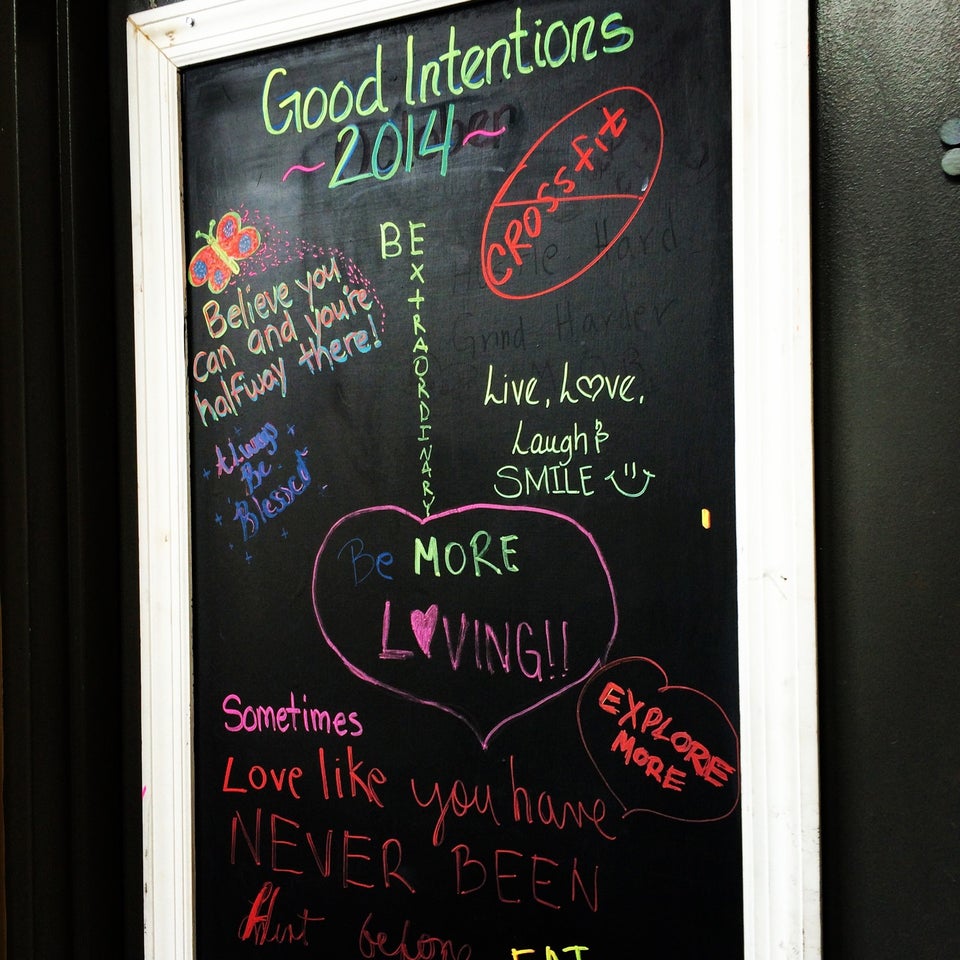 Good Intentions
~2014~
CROSSfit
BE
EXTRAORDINARY
Believe you
can and you're
halfway there!
Grind Harder
Live, Love,
Laugh &
SMILE
Always
Be
Blessed
Be MORE
LOVING!!
EXPLORE
MORE
Sometimes
Love like you have
NEVER BEEN
Hurt before
EAT